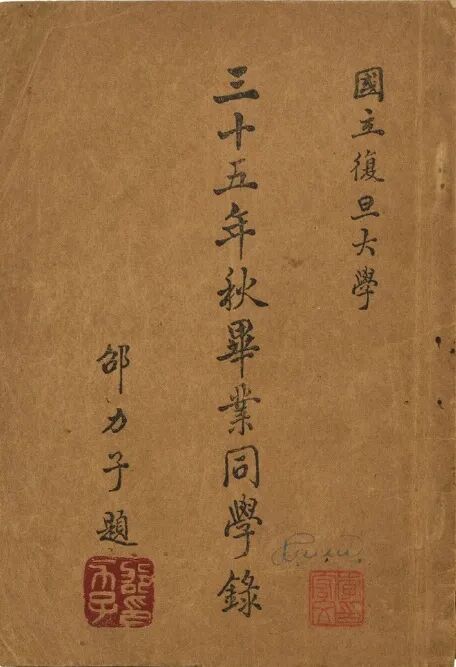 國立復旦大學
三十五年秋畢業同學錄
邵力子題